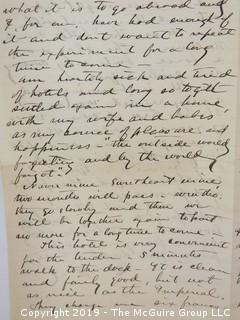 what it is to go abroad and
I, for one, have had enough of
it – and don't want to repeat
the experiment for a long
time to come –
am heartily sick and tired
of hotels and long so to get
settled again in a home,
with my wife and babes
as my source of pleasure and
happiness – "the outside world
forgetting and by the world
forgot".
Never mind, Sweetheart mine,
two months will pass –
they go slowly – and then we
will be together again to part
no more for a long time to come –
This hotel is very convenient
for the tender – 5 minutes
walk to the dock. It is clean
and fairly good, but not
as nice as the Imperial.
They charge me six francs
Copyright 2019 - The McGuire Group LLC